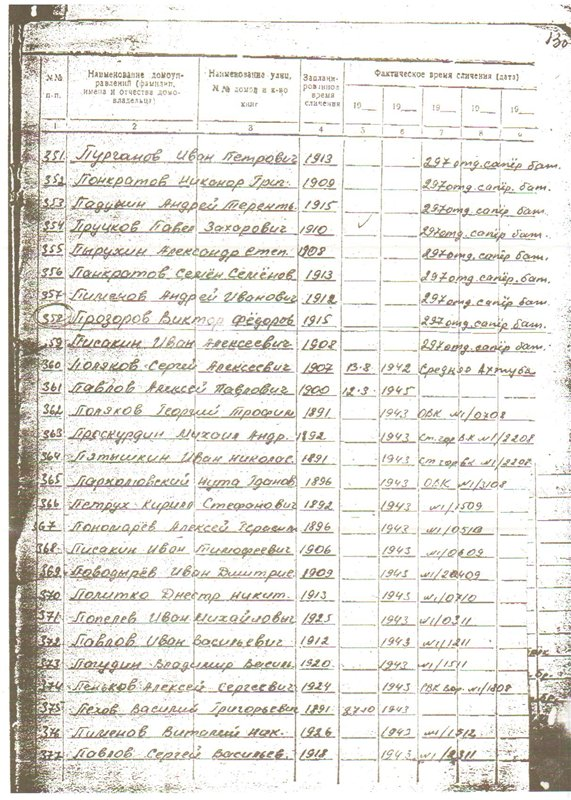 130
№№ п-п.
Наименование домоуправлений (фамилия, имена и отчества домовладельца)
Наименование улиц, №№ домов и к-во книг
Запланированное время сличения
Фактическое время сличения (дата)
19__ 19__ 19__ 19__ 19__
1 2 3 4 5 6 7 8 9
351 Пурганов Иван Петрович 1913 297 отд. сапёр. бат.
352 Понкратов Никонор Григ. 1909 297 отд. сапёр. бат.
353 Падукин Андрей Терентъ. 1915 297 отд. сапёр. бат.
354 Пручков Павел Захарович 1910 297 отд. сапёр. бат.
355 Пырухин Александр Степ. 1908 297 отд. сапёр. бат.
356 Панкратов Семён Семёнов 1913 297 отд. сапёр. бат.
357 Пименов Андрей Иванович 1912 297 отд. сапёр. бат.
358 Прозоров Виктор Фёдоров 1915 297 отд. сапёр. бат.
359 Писакин Иван Алексеевич 1908 297 отд. сапёр. бат.
360 Поляков Сергей Алексеевич 1907 13.8 1942 Средняя Ахтуба
361 Павлов Алексей Павлович 1900 12.3 1945
362 Поляков Георгий Трофим 1891 1943 ОВК №1/0708
363 Проскурдин Михаил Андр. 1892 1943 Ст. гор ВК №1/2208
364 Пятышкин Иван Николас. 1891 1943 Ст гор вк №1/2208
365 Нута 1896 1943 ОВК №1/3108
366 Петрух Кирилл Стефанович 1892 1943 №1/1509
367 Пономарёв Алексей 1896 1943 №1/0510
368 Писакин Иван Тимофеевич 1906 1943 №1/0609
369 Поводырёв Иван Дмитрие 1909 1943 №1/20409
370 Политко Днестр Никит. 1913 1943 №1/0710
371 Попелев Иван Михайловы 1925 1943 №1/0311
372 Павлов Иван Васильевич 1912 1943 №1/1211
373 Погудин Владимир Василь. 1920 1943 №1/1511
374 Пеньков Алексей Сергеевич 1924 1943 №1/1808
375 Пехов Василий Григорьевич 1891 27.10 1943
376 Пименов Виталий 1926 1943 №1/1512
377 Павлов Сергей Васильев. 1918 1943 №1/2311